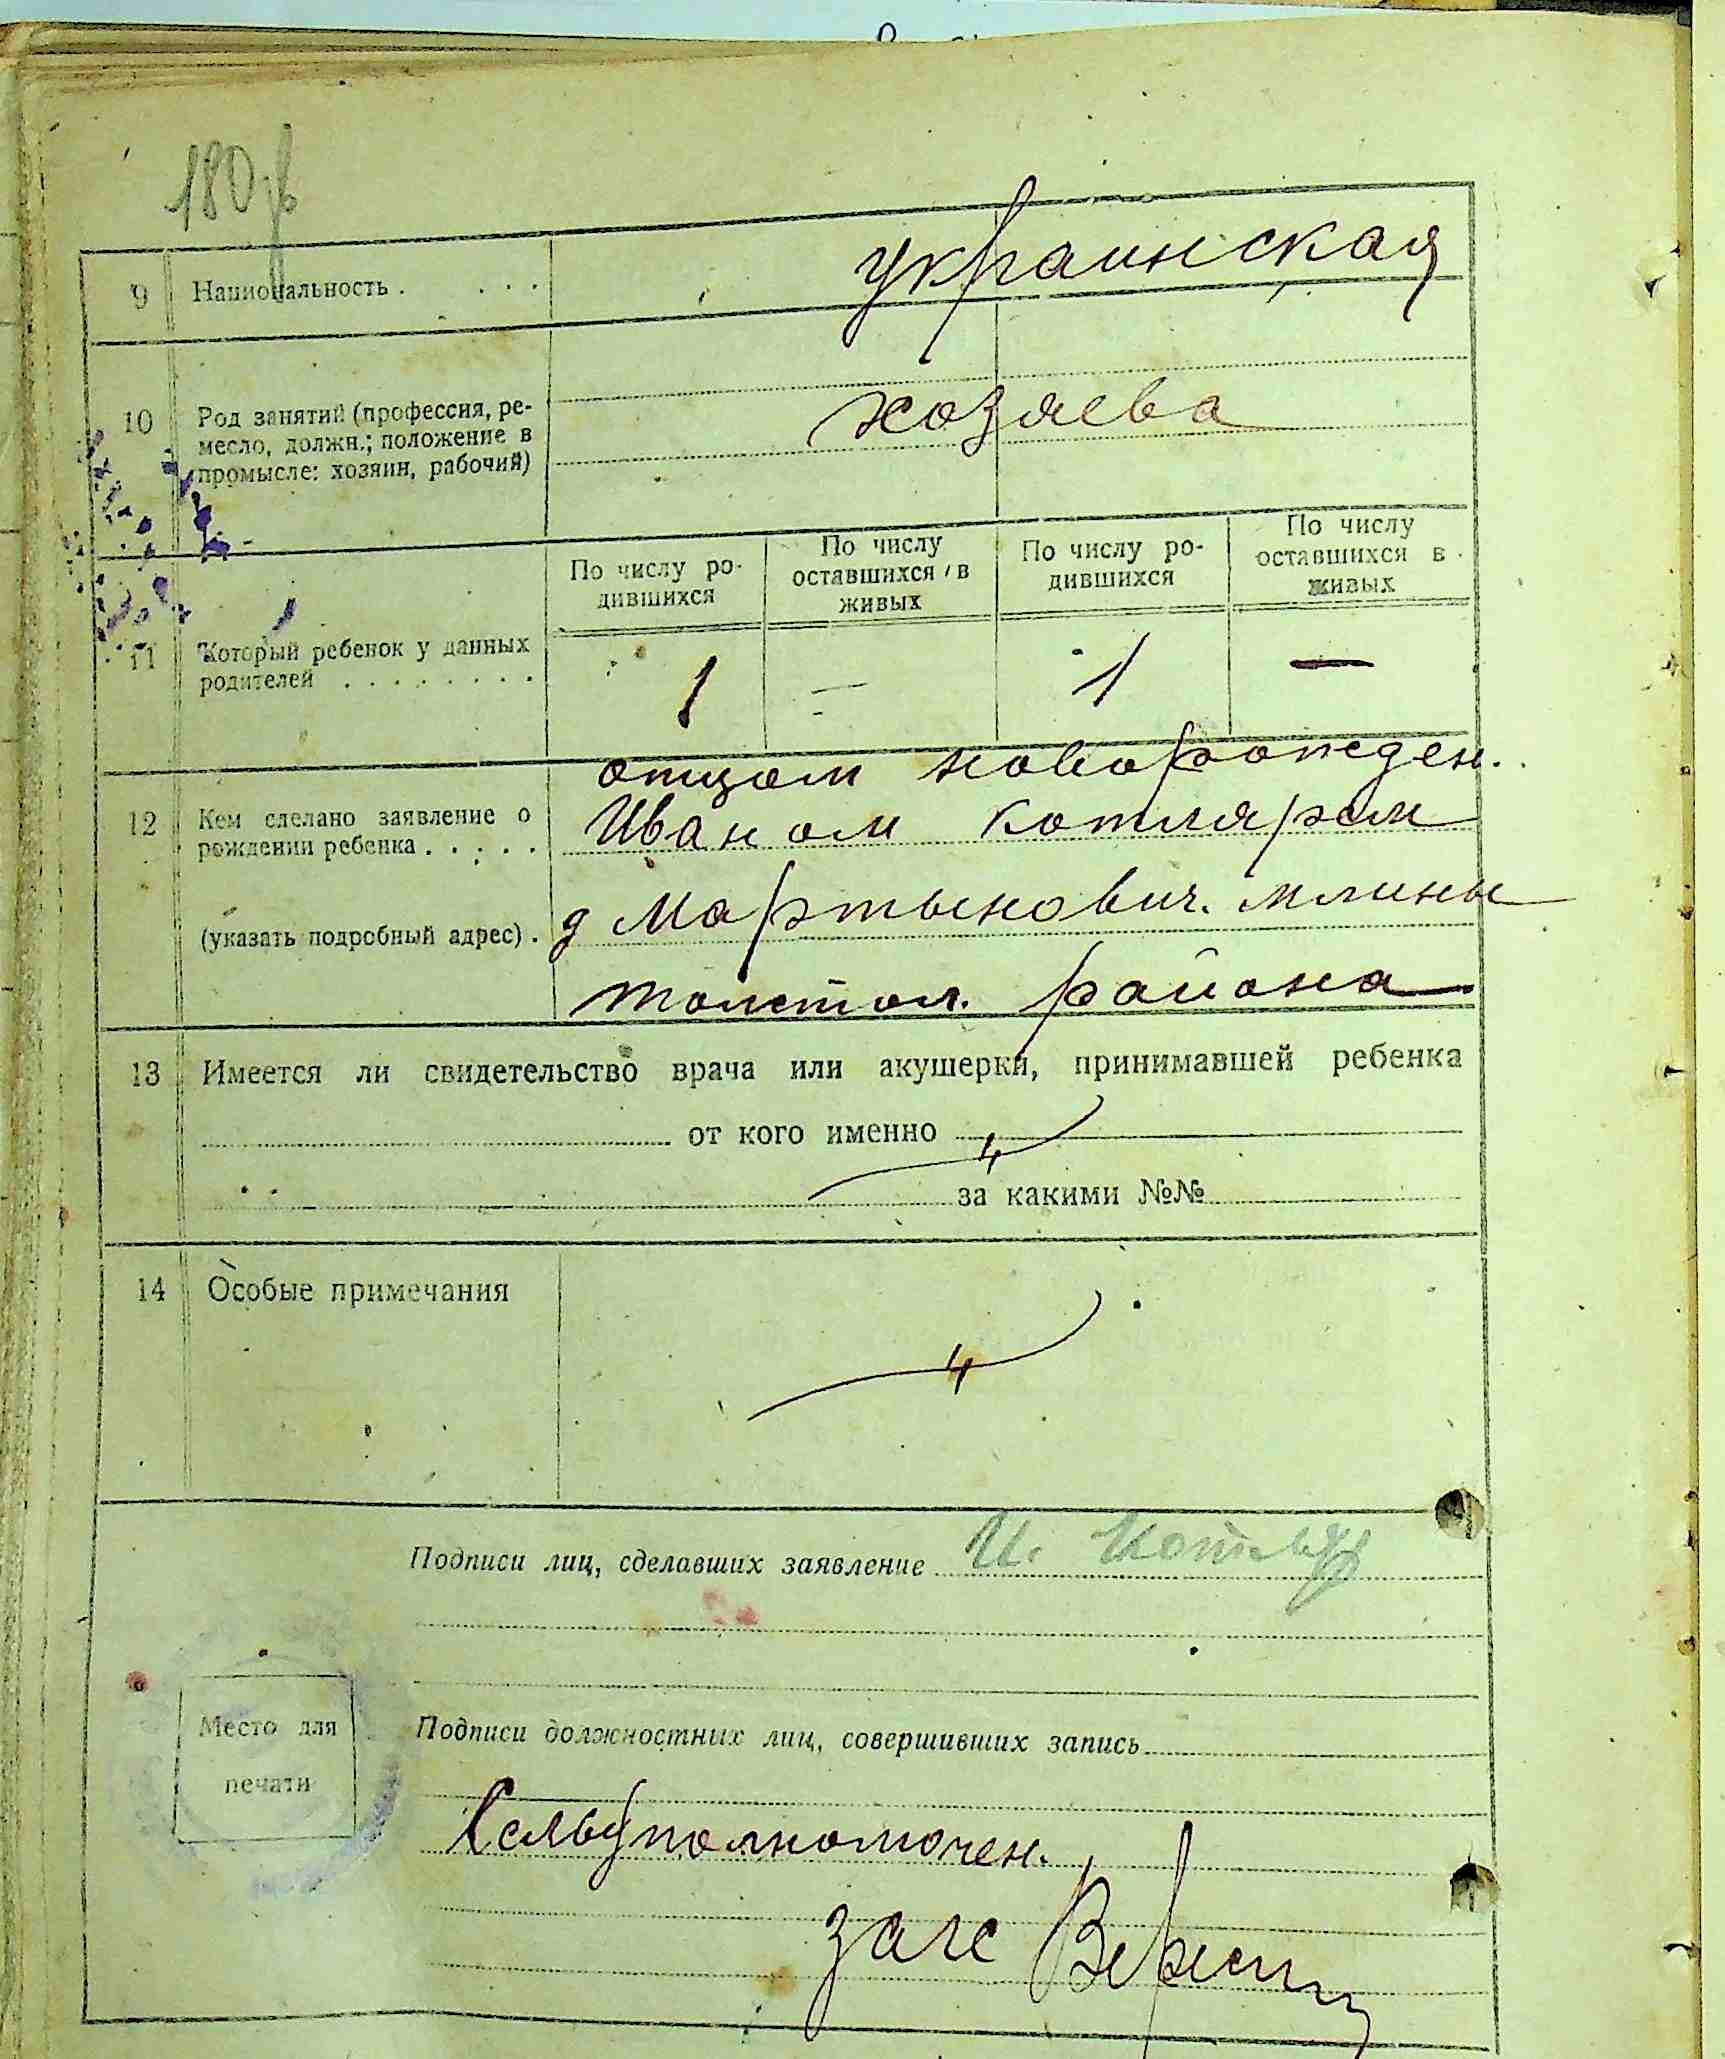 180
9 Национальность . . . . украинская
10 Род занятий (профессия, ре-
месло, должн.; положение в
промысле: хозяин, рабочий)
хозяева
По числу ро-
дившихся
По числу
оставшихся в
живых
По числу ро-
дившихся
По числу
оставшихся в
живых
11 Который ребенок у данных
родителей . . . . . . . .
1 — 1 —
12 Кем сделано заявление о
рождении ребенка . . . . .
(указать подробный адрес) .
отцом новорожден.
Иваном Котляром
д Мартынович. млины
толстол. района
13 Имеется ли свидетельство врача или акушерки, принимавшей ребенка
от кого именно
за какими №№
14 Особые примечания
Подписи лиц, сделавших заявление И. Котляр
Место для
печати
Подписи должностных лиц, совершивших запись
Сельуполномочен.
загс